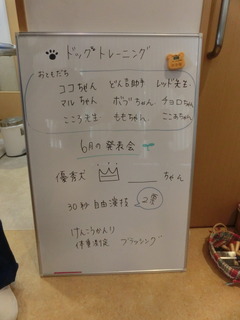 ドッグトレーニング
おともだち
ココちゃん どん吉助手 レッド先生
マルちゃん ボブちゃん チョロちゃん
こころ先生 ももちゃん ここあちゃん
6月の発表会
優秀犬 ちゃん
30秒 自由演技 2準
けんこうかんり
体重測定 ブラッシング